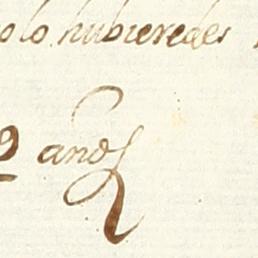 olo hubieredes
2 años